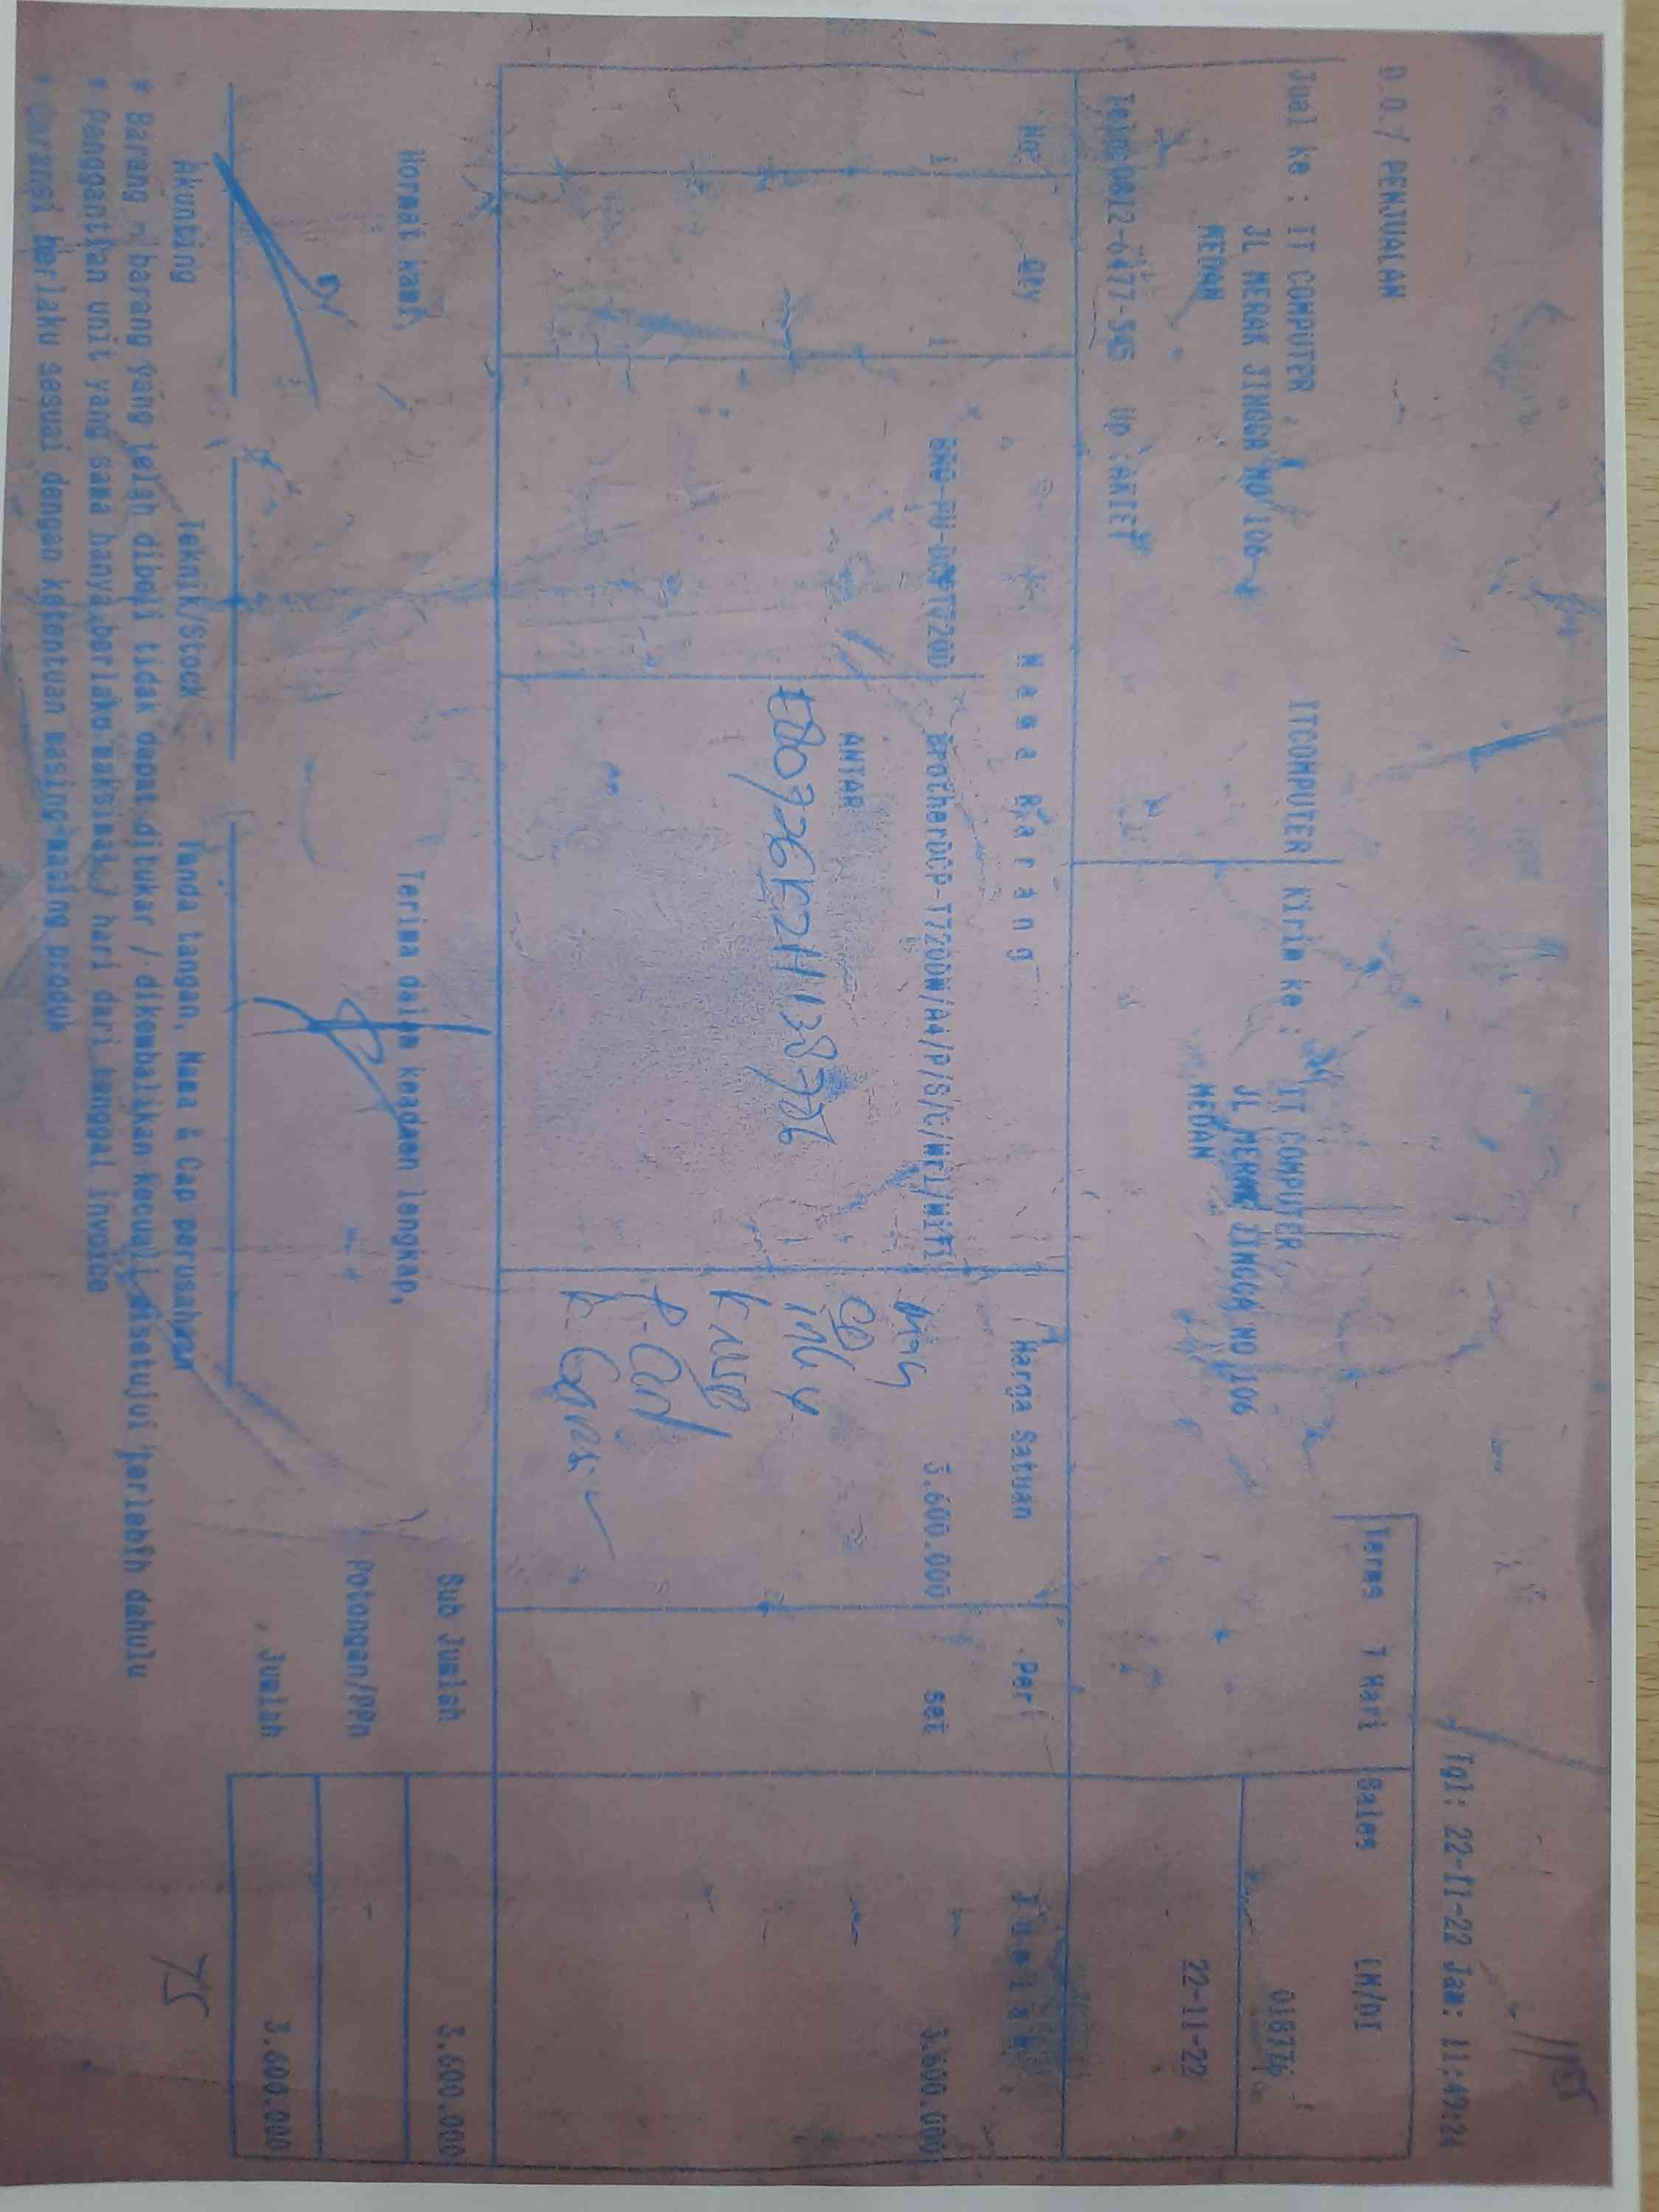 Tgl: 22-11-22 Jam: 11:49:24
D.O./ PENJUALAN
Terms 7 Hari Sales LM/DI
Jual ke : IT COMPUTER ITCOMPUTER Kirim ke : IT COMPUTER
018776
JL MERAK JINGGA NO 106 JL MERAK JINGGA NO 106
MEDAN MEDAN 22-11-22
Up :
No Qty Nama Barang Harga Satuan Per Jumlah
1 1 BrotherDCP-T720DW/A4/P/S/C/Wrl/Wifi 3.600.000 set 3.600.000
ANTAR
Sub Jumlah 3.600.000
Hormat kami, Terima dalam keadaan lengkap,
Potongan/PPn
Jumlah 3.600.000
Akunting Teknik/Stock Tanda tangan, Nama & Cap perusahaan
75
* Barang - barang yang telah dibeli tidak dapat ditukar / dikembalikan kecuali disetujui terlebih dahulu
* Penggantian unit yang sama hanya berlaku maksimal 7 hari dari tanggal invoice
* Garansi berlaku sesuai dengan ketentuan masing-masing produk